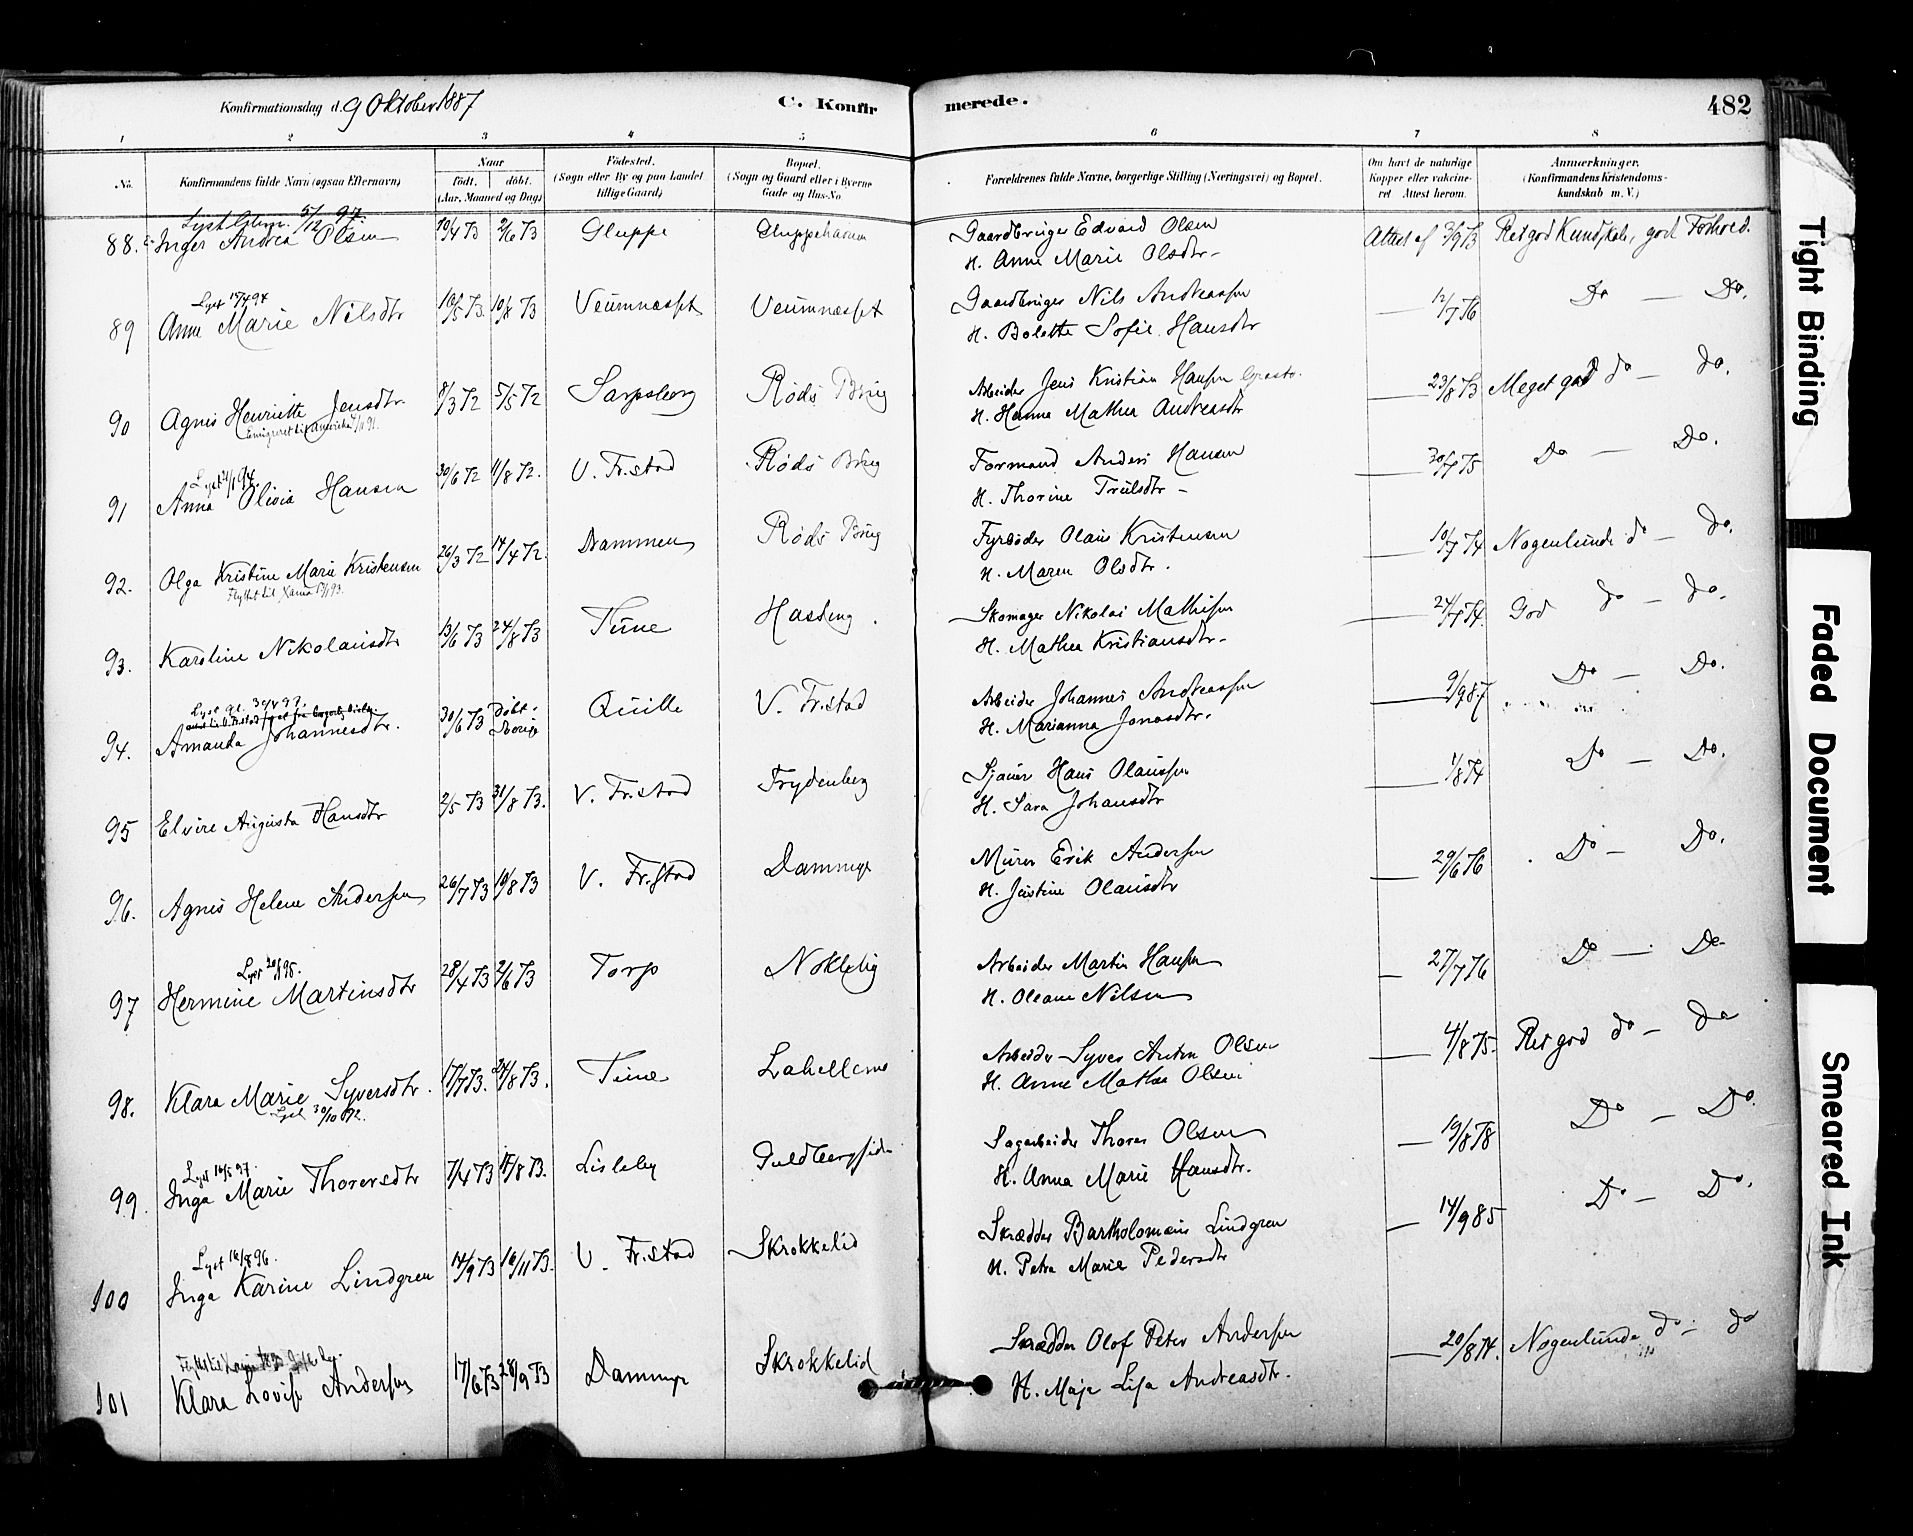 Konfirmationsdag d. 9 Oktober 1887
C. Konfirmerede.
482
1 2 3 4 5 6 7 8
No.
Konfirmandens fulde Navn (ogsaa Efternavn)
Naar
födt. döbt.
(Aar, Maaned og Dag)
Födested.
(Sogn eller By og paa Landet
tillige Gaard)
Bopæl.
(Sogn og Gaard eller i Byerne
Gade og Hus-No
Forældrenes fulde Navne, borgerlige Stilling (Næringsvei) og Bopæl.
Om havt de naturlige
Kopper eller vaccine-
ret Attest herom.
Anmærkninger.
(Konfirmandens Kristendoms-
kundskab m. V.)
Lyst Glem. 5/12 97.
88. Inger Andrea Olsen 10/4 73 2/6 73 Gluppe Gluppehavn Gaardbruger Edvard Olsen Attest af 3/9 73 Ret god Kundskab, god Forhold.
H. Anne Marie Olsdtr
Lyst 15/4 94
89 Anne Marie Nilsdtr 10/5 73. 10/8 73 Veumnæsset Veumnæsset Gaardbruger Nils Andreassen 12/7 76 Do — Do.
H. Bolette Sofie Hansdtr
90 Agnes Henriette Jensdtr 8/3 72 5/5 72 Sarpsborg Røds Brug Arbeider Jens Kristian Hansen 23/8 73 Meget god do — do.
Emigreret til Amerika 91.
H. Hanna Mathea Andreasdtr
Lyst 21/1 94.
91 Anna Olivia Hansen 30/6 72 11/8 72. V. Fr.stad Røds Brug Formand Anders Hansen 30/7 75 Do — Do.
H. Thorine Trulsdtr
92. Olga Kristine Marie Kristensen 26/3 72 14/4 72. Dammen Røds Brug Fyrbøder Olaus Kristensen 10/7 74 Nogenlunde do — do.
H. Maren Olsdtr.
93. Karoline Nikolaisdtr 13/6 73 24/8 73 Tune Hasleng. Skomager Nikolai Mathisen 24/7 74. God do — do.
H. Mathea Kristiansdtr
94. Amanda Johannesdtr. 30/6 73 Döbt i Sverige Quille V. Fr.stad Arbeider Johannes Andreassen 9/9 87 Do — Do.
H. Marianna Jonasdtr.
95 Elvire Augusta Hansdtr 2/5 73 31/8 73. V. Fr.stad Frydenberg Sjauer Hans Olaussen 1/8 74 Do — Do.
H. Sara Johansdtr
96. Agnes Helene Andersen 26/7 73 10/8 73 V. Fr.stad Dammyr Murer Erik Andersen 29/6 76 Do — Do.
H. Justine Olausdtr
Lyst 20/1 95.
97 Hermine Martinsdtr 28/4 73 2/6 73 Torp Nøkleby Arbeider Martin Hansen 27/7 76 Do — Do
H. Oleane Nilsen
98. Klara Marie Syversdtr. 17/7 73. 24/8 73. Tune Lahellerne Arbeider Syver Anton Olsen 4/8 75. Ret god do — do
Lyst 30/10 92.
H. Anne Mathea Olsen
Lyst 16/5 97.
99. Inga Marie Thorersdtr 7/4 73 15/8 73. Lisleby Guldbergsiden Sagarbeider Thorer Olsen 19/8 78 Do — Do
H. Anna Marie Hansdtr.
Lyst 16/8 96.
100 Inga Karine Lindgren 14/9 73 16/11 73. V. Fr.stad Skrokkelid Skrædder Bartholomæus Lindgren 14/9 85 Do — Do.
H. Petra Marie Pedersdtr
101 Klara Lovise Andersen 17/6 73 28/9 73 Dammyr Skrokkelid Skrædder Olof Peter Andersen 20/8 74. Nogenlunde do — do
H. Maja Lisa Andreasdtr.
Tight Binding
Faded Document
Smeared Ink